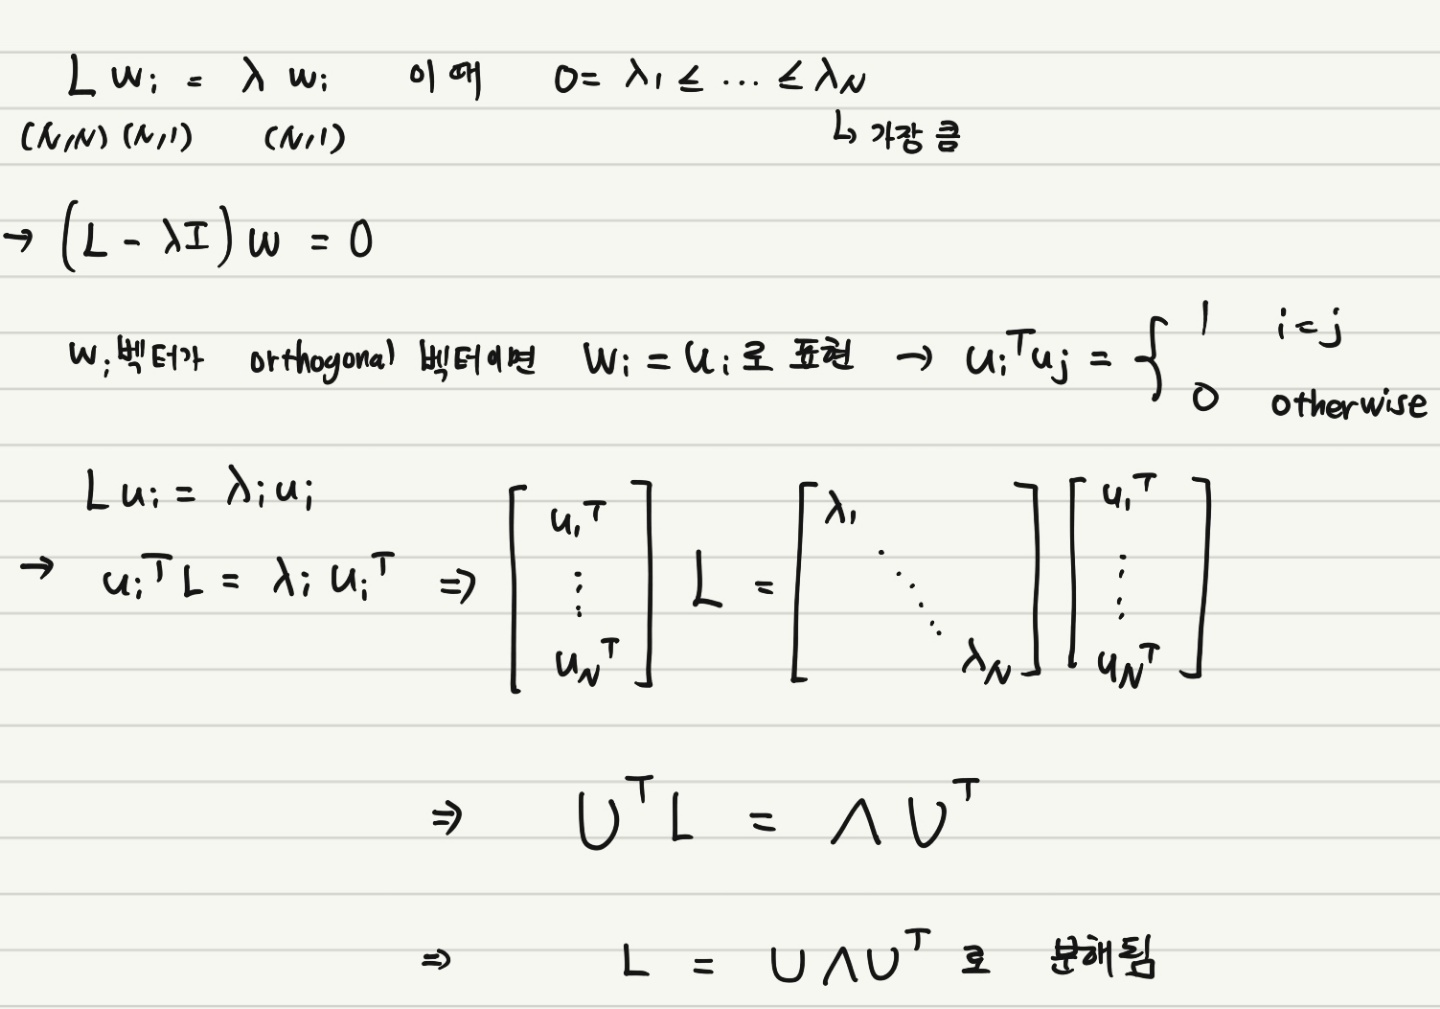 L w_i = λ w_i 이때 0 = λ_1 ≤ ... ≤ λ_N
(N,N) (N,1) (N,1) ↳ 가장 큼
→ (L - λI) w = 0
w_i 벡터가 orthogonal 벡터이면 w_i = u_i 로 표현 → u_i^T u_j = { 1 i=j
0 otherwise
L u_i = λ_i u_i
→ u_i^T L = λ_i u_i^T ⇒ [u_1^T ⋮ u_N^T] L = [λ_1 ⋱ λ_N] [u_1^T ⋮ u_N^T]
⇒ U^T L = Λ U^T
⇒ L = U Λ U^T 로 분해됨